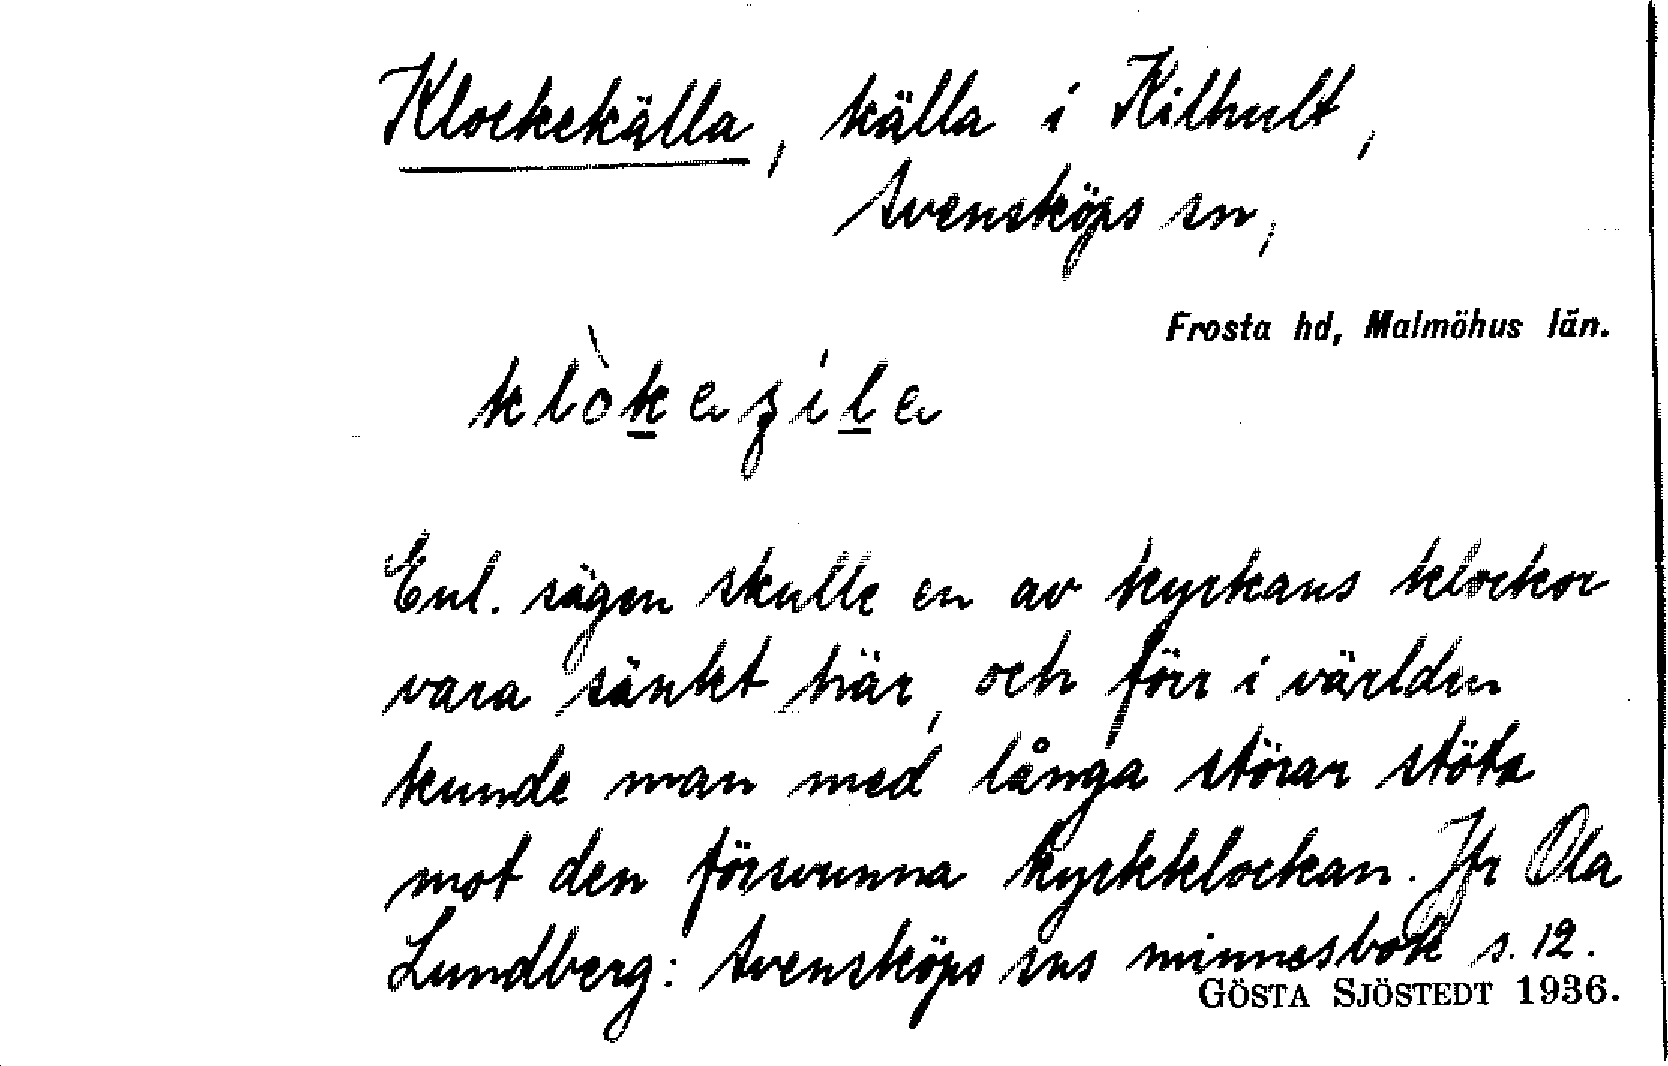 Klockekälla, källa i Kilhult,
Svensköps sn,
Frosta hd, Malmöhus län.
Enl. sägen skulle en av kyrkans klockor
vara sänkt här, och förr i världen
kunde man med långa störar stöta
mot den försvunna kyrkklockan. Jfr Ola
Lundberg: Svensköps sns minnesbok s. 12.
GÖSTA SJÖSTEDT 1936.